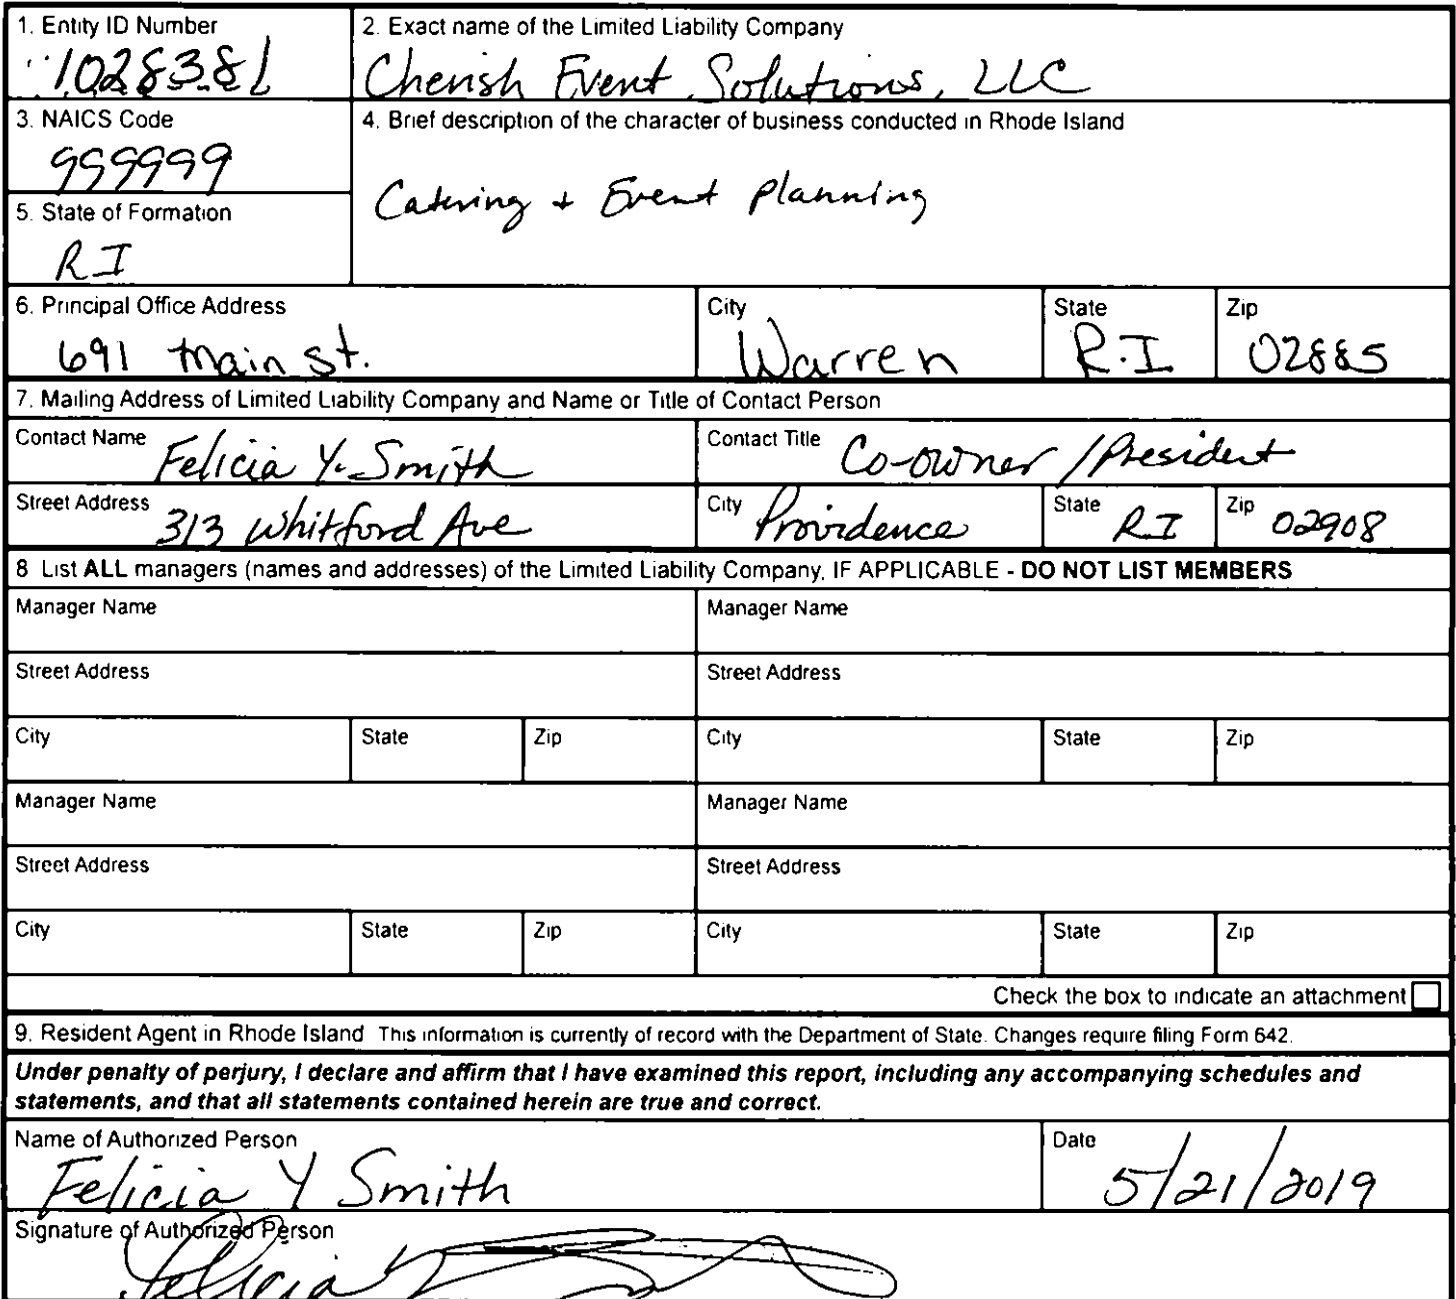 1. Entity ID Number
1028381
2. Exact name of the Limited Liability Company
Cherish Event Solutions, LLC
3. NAICS Code
999999
4. Brief description of the character of business conducted in Rhode Island
Catering + Event Planning
5. State of Formation
RI
6. Principal Office Address
691 Main St.
City
Warren
State
R.I
Zip
02885
7. Mailing Address of Limited Liability Company and Name or Title of Contact Person
Contact Name Felicia Y. Smith
Contact Title Co-owner / President
Street Address 313 Whitford Ave
City Providence
State RI
Zip 02908
8 List ALL managers (names and addresses) of the Limited Liability Company, IF APPLICABLE - DO NOT LIST MEMBERS
Manager Name
Manager Name
Street Address
Street Address
City State Zip City State Zip
Manager Name
Manager Name
Street Address
Street Address
City State Zip City State Zip
Check the box to indicate an attachment
9. Resident Agent in Rhode Island This information is currently of record with the Department of State. Changes require filing Form 642.
Under penalty of perjury, I declare and affirm that I have examined this report, including any accompanying schedules and
statements, and that all statements contained herein are true and correct.
Name of Authorized Person
Felicia Y Smith
Date
5/21/2019
Signature of Authorized Person
Felicia Y